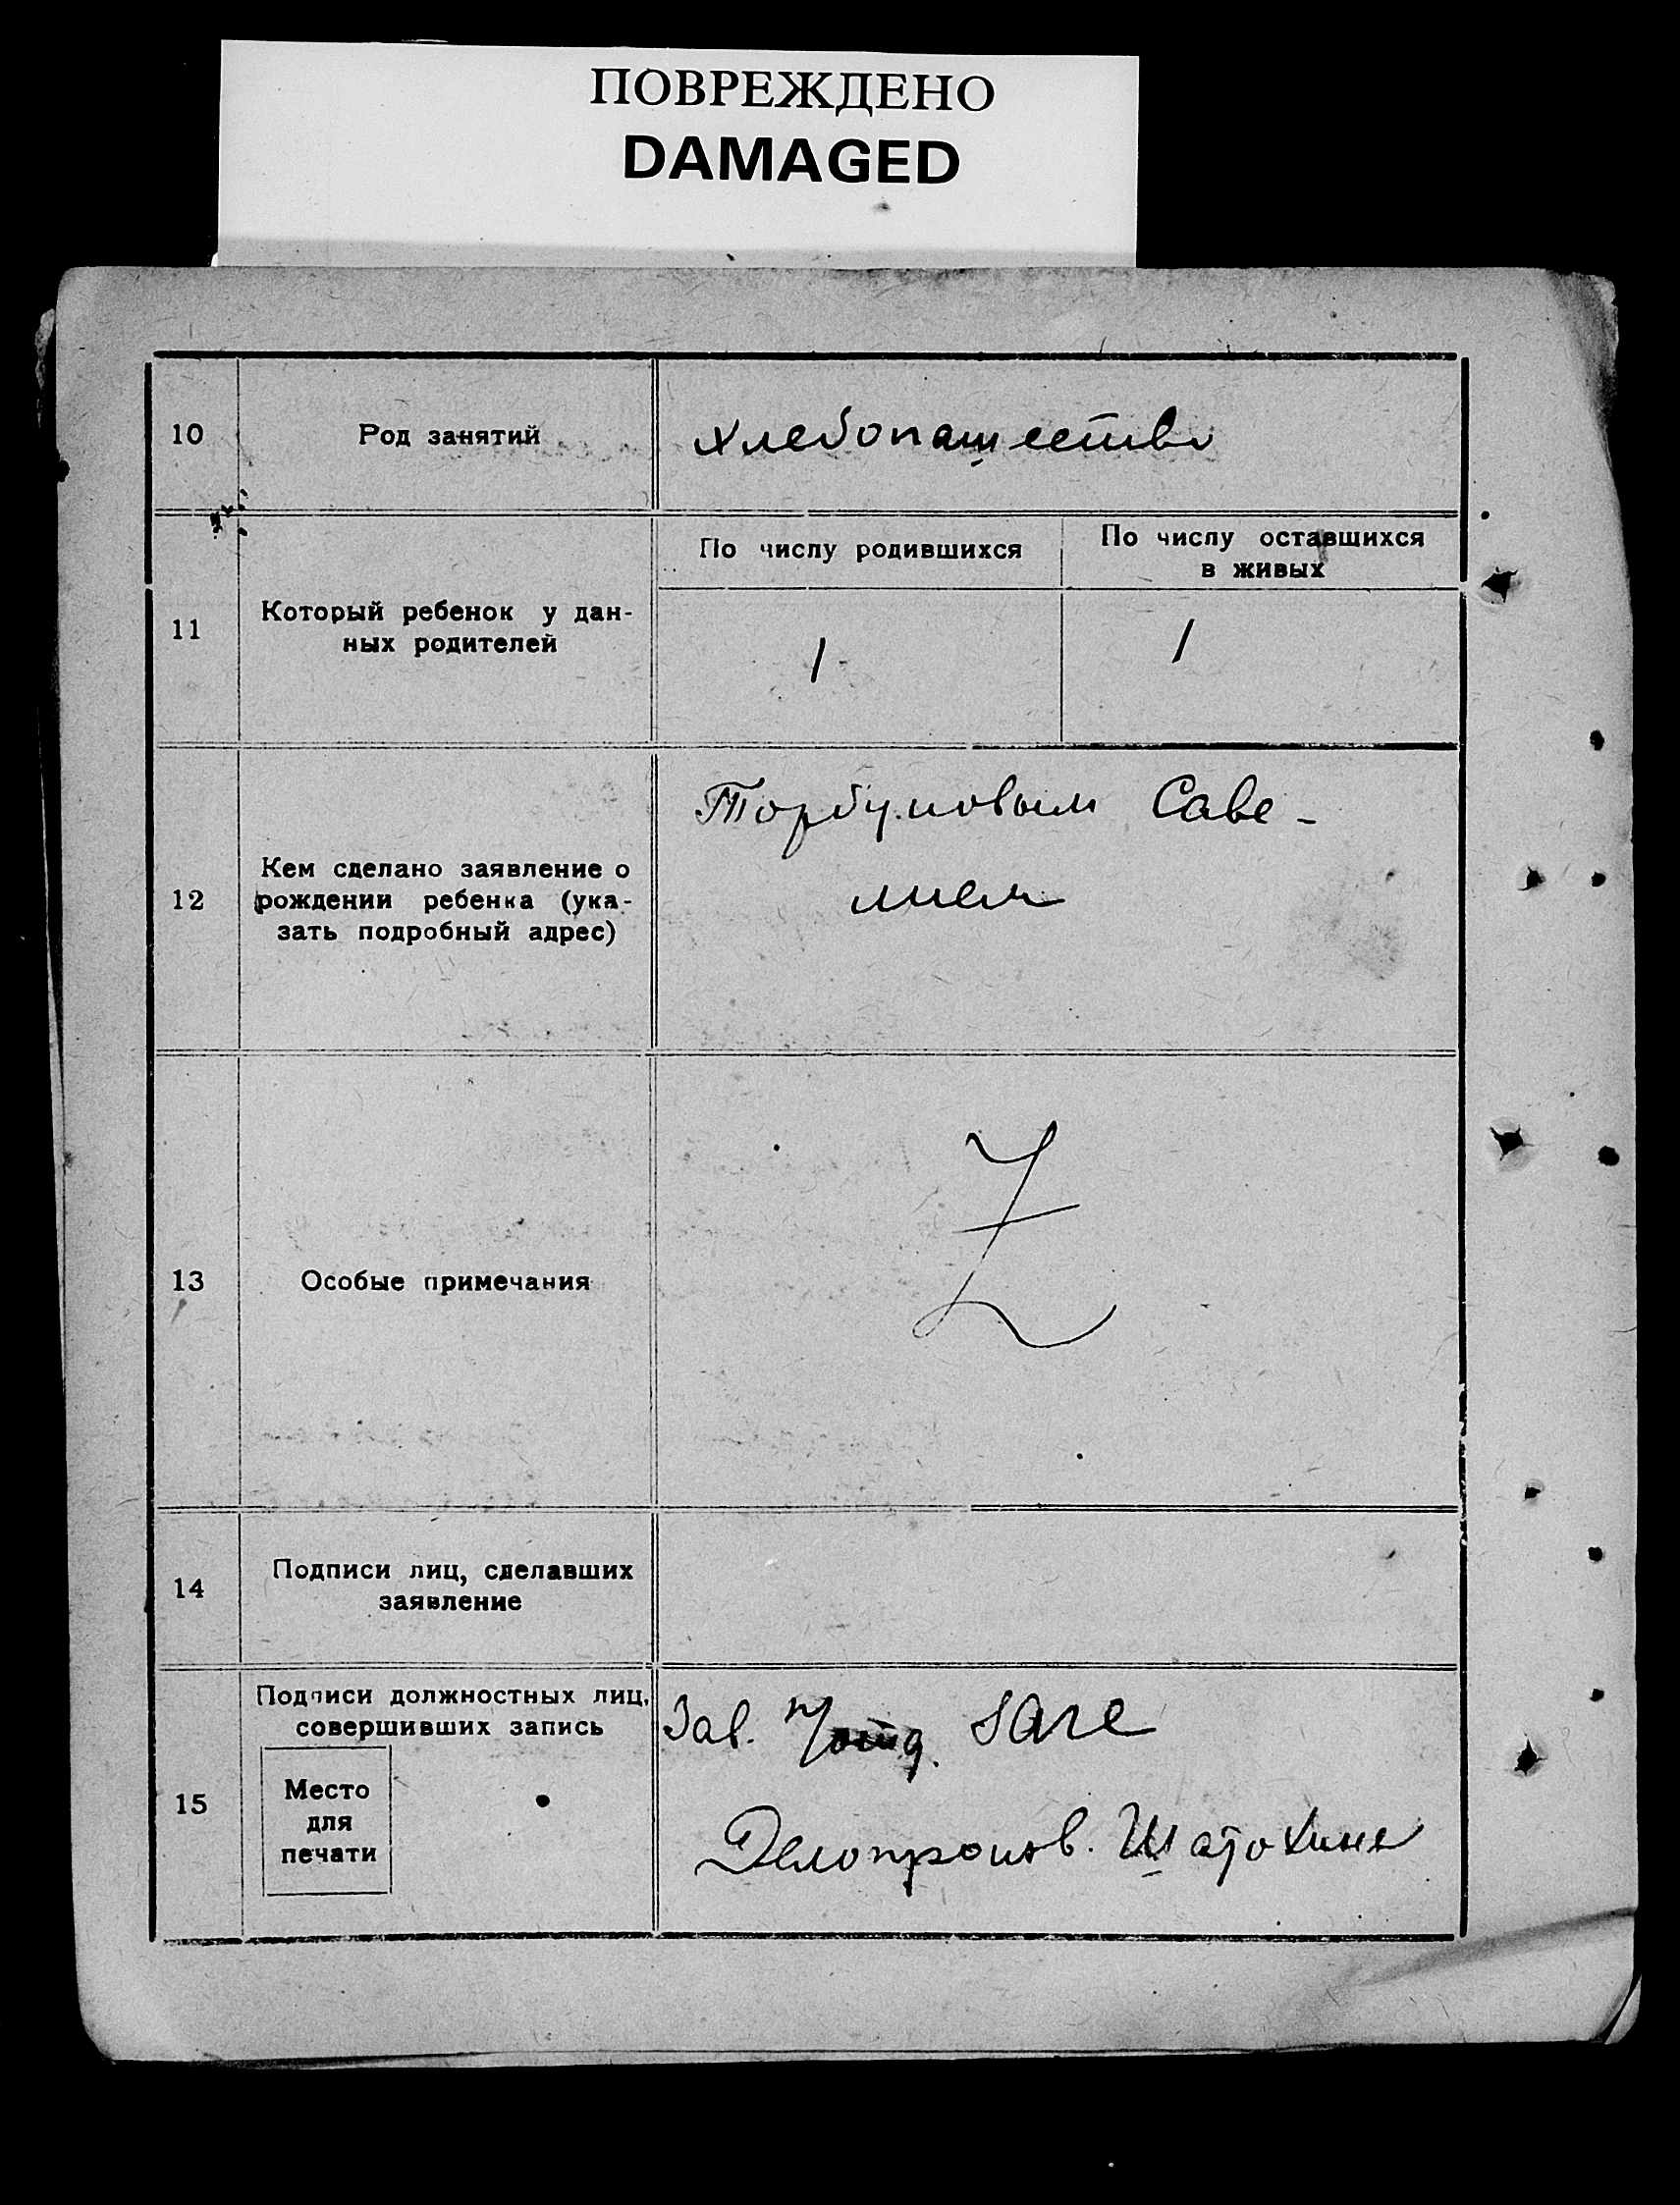 ПОВРЕЖДЕНО
DAMAGED
10
Род занятий
хлебопашество
11
Который ребенок у дан-
ных родителей
По числу родившихся
1
По числу оставшихся
в живых
1
12
Кем сделано заявление о
рождении ребенка (ука-
зать подробный адрес)
Саве-
лием
13
Особые примечания
Z
14
Подписи лиц, сделавших
заявление
15
Подписи должностных лиц,
совершивших запись
Место
для
печати
Зав.
Делопроизв. Шатохина